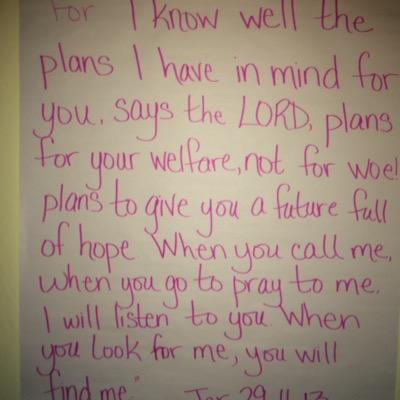 For I know well the
plans I have in mind for
you, says the LORD, plans
for your welfare, not for woe!
plans to give you a future full
of hope. When you call me,
when you go to pray to me,
I will listen to you. When
you look for me, you will
find me." Jer 29 11-13